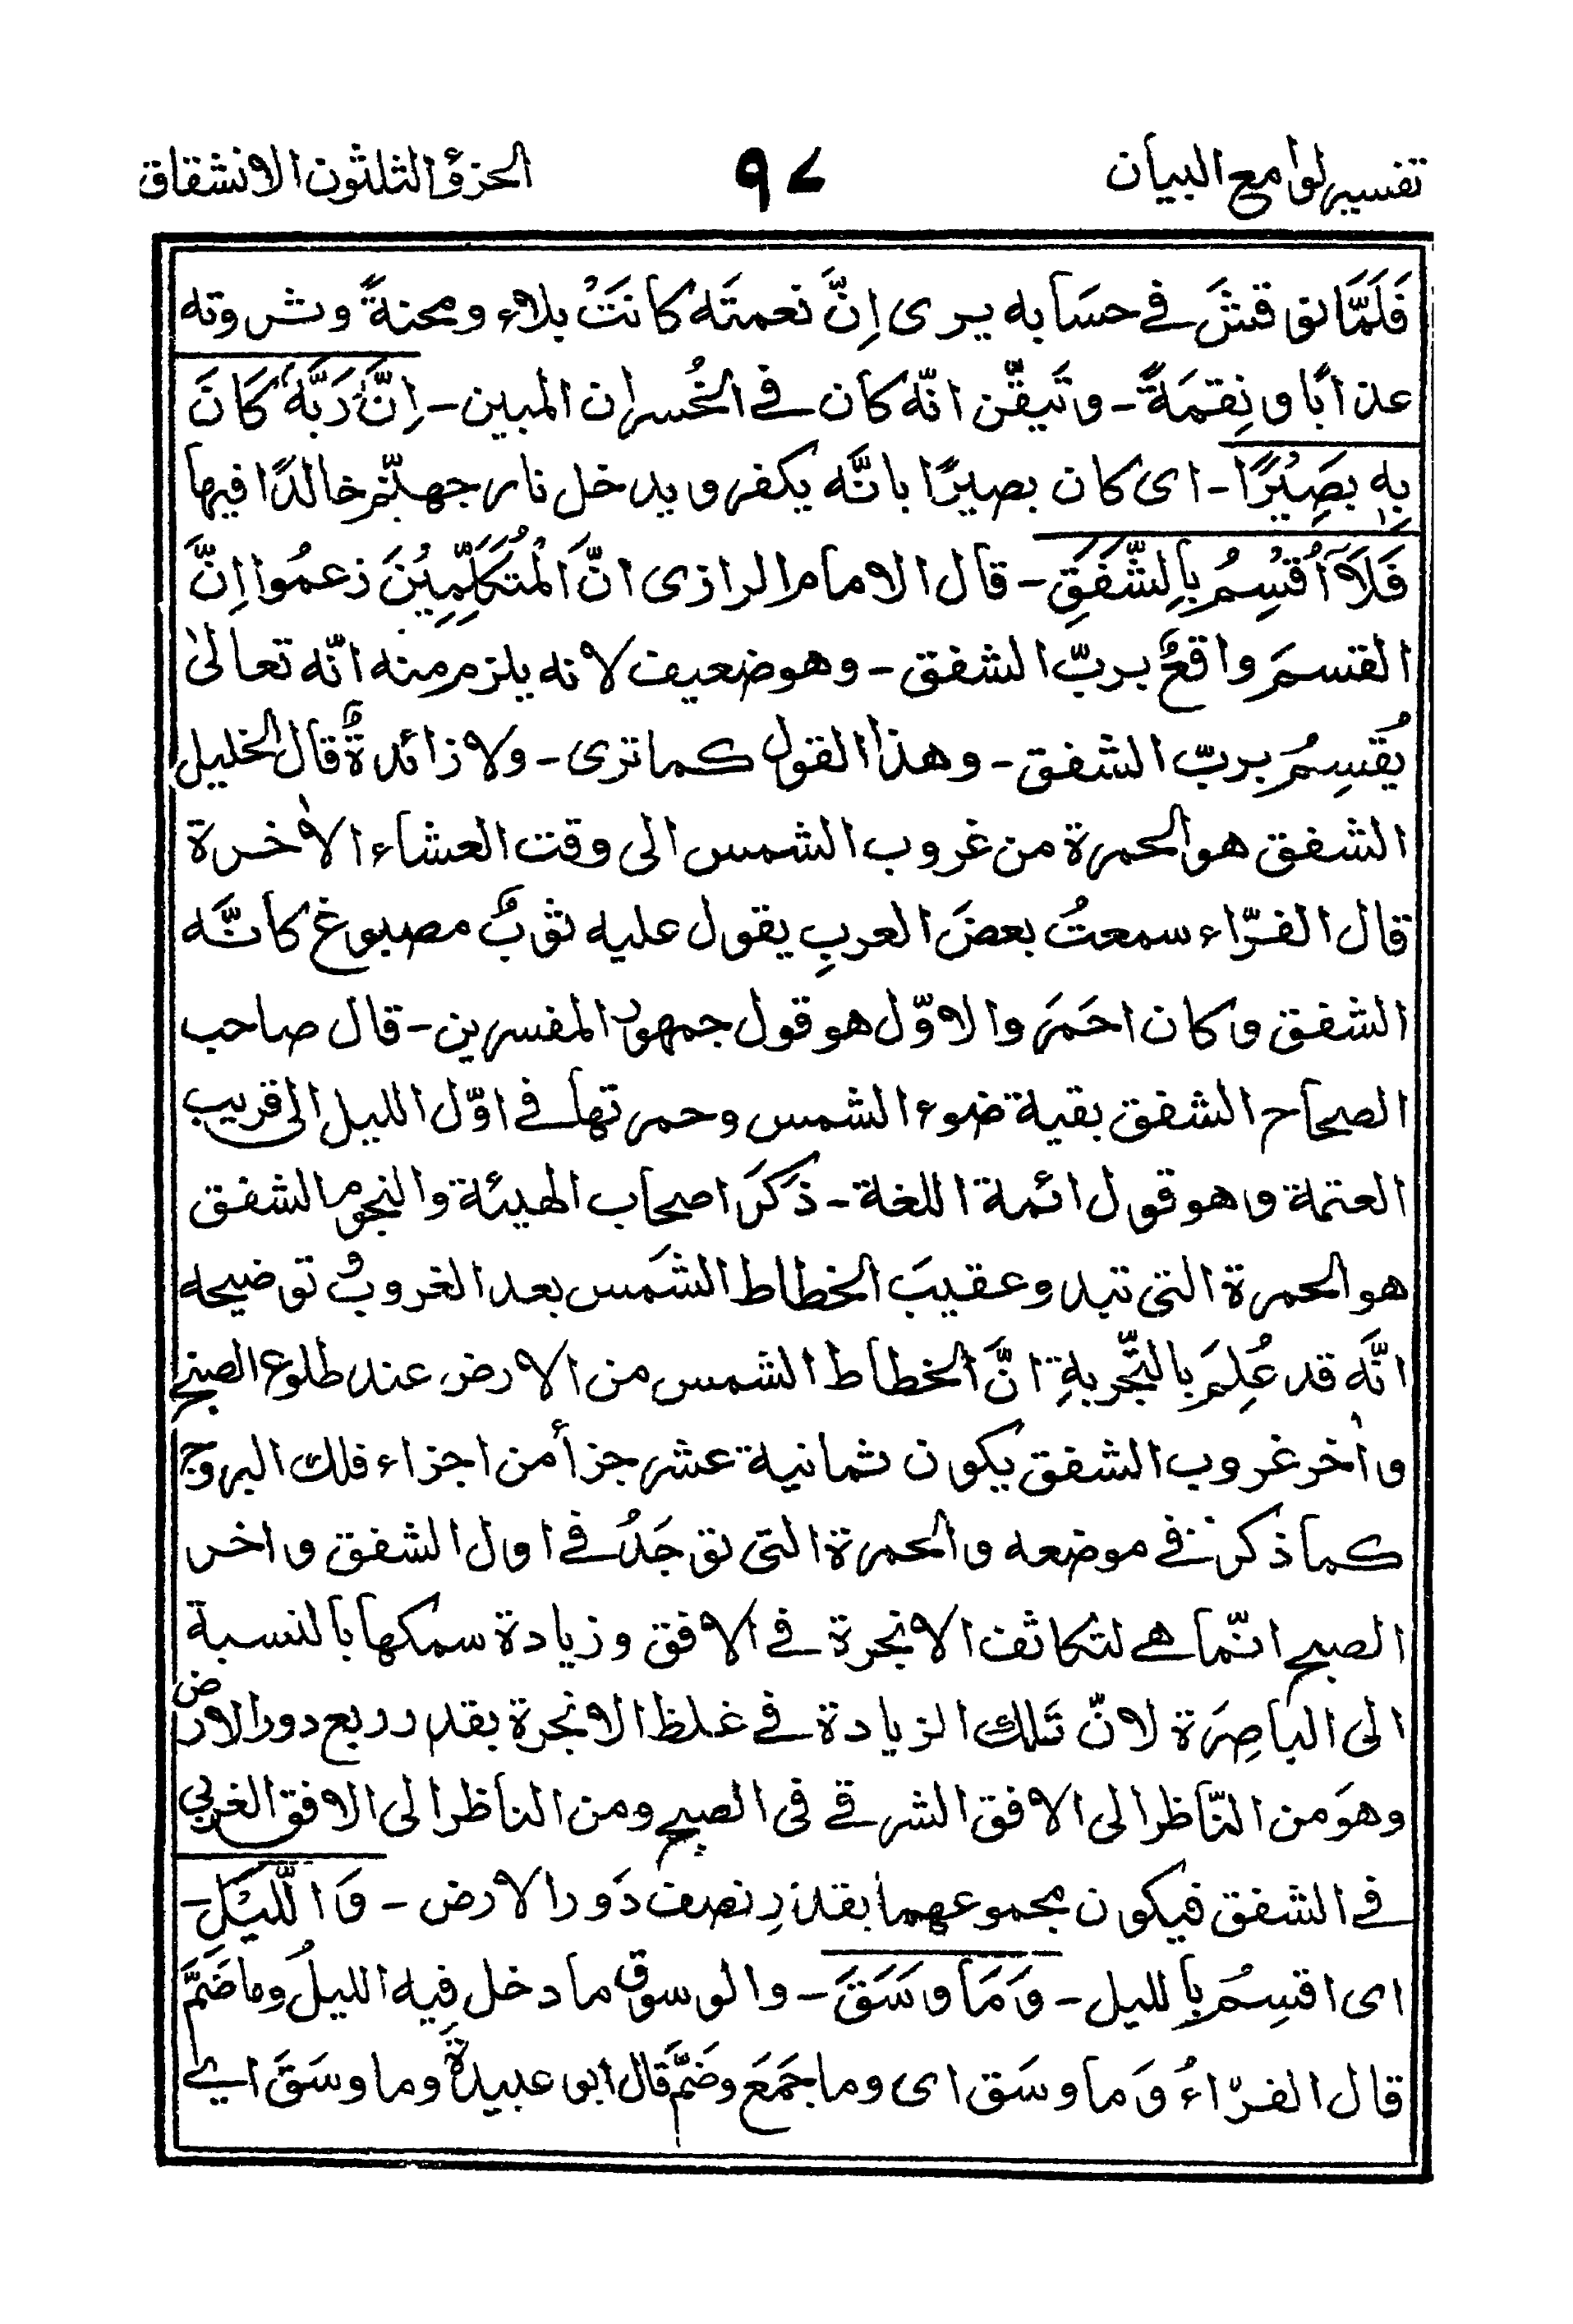 تفسير لوامع البيان ٩٧ الجزؤ الثلثون الانشقاق
فَلَمَّا نوقشَ في حسَابه يرى اِنَّ نعمتَه كانَتْ بلاء ومحنةً وثروته
عذابًا ونِقمَةً - وتَيقَّن انّه كان في الخُسران المبين - اِنَّ رَبَّهٗ كَانَ
بِهٖ بَصِيْرًا - اى كان بصيرًا بانَّه يكفر ويدخل نار جهنّم خالدًا فيها
فَلَآ اُقْسِمُ بِالشَّفَقِ - قال الامام الرازى انّ الْمُتكَلِّمِيْنَ زعمُوا اِنَّ
القسمَ واقعٌ بربّ الشفق - وهو ضعيف لانه يلزم منه انّه تعالىٰ
يُقسِمُ بربّ الشفق - وهذا القول كما ترى - ولا زائدةٌ قال الخليل
الشفق هو الحمرة من غروب الشمس الى وقت العشاء الاٰخرة
قال الفرّاء سمعتُ بعضَ العربِ يقول عليه ثوبٌ مصبوغ كانَّه
الشفق وكان احمَرَ والاوّل هو قول جمهور المفسرين - قال صاحب
الصحاح الشفق بقية ضوء الشمس وحمرتها في اوّل الليل الى قريب
العتمة وهو قول ائمة اللغة - ذكَرَ اصحاب الهيئة والنجوم الشفق
هو الحمرة التى تبدو عقيبَ انحطاط الشمَس بعد الغروبْ توضيحه
انَّه قد عُلِمَ بالتّجربةِ انَّ انحطاط الشمس من الارض عند طلوع الصبح
واٰخر غروب الشفق يكون ثمانية عشر جزأ من اجزاء فلك البروج
كما ذكرن في موضعه والحمرة التى توجَدُ في اول الشفق واخر
الصبح انّما هے لتكاثف الابخرة في الافق وزيادة سمكها بالنسبة
الى الباصِرَة لانّ تَلك الزيادة في غلظ الابخرة بقدر ربع دور الارض
وهوَ من النّاظر الى الافق الشرقے فى الصبح ومن الناظر الى الافق الغربي
في الشفق فيكون مجموعهما بقدرِ نصف دَور الارض - وَالَّيْلِ -
اى اقسِمُ بالليل - وَمَا وَسَقَ - والوسوق ما دخل فيه الليلُ وما ضَمَّ
قال الفرّاءُ وَما وسَق اى وما جَمَعَ وضَمَّ قال ابو عبيدةَ وما وسَقَ اے